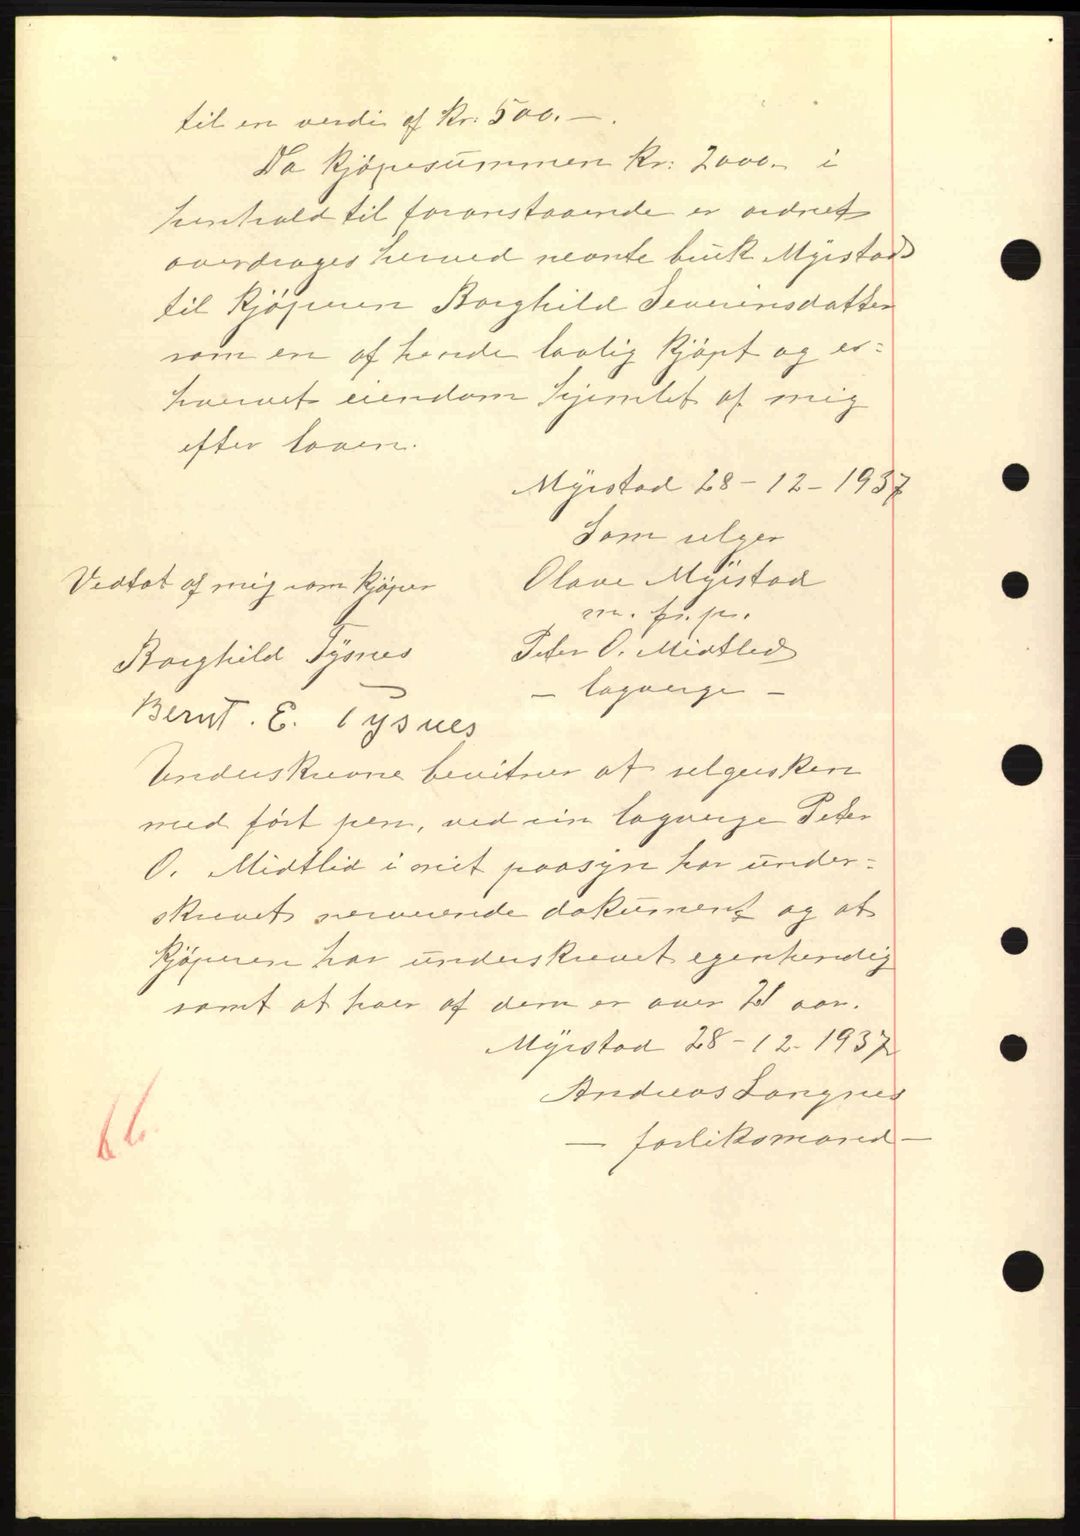 til en verdi af kr: 500.—.
Da kjøpesummen kr: 2000.- i
henhold til foranstaaende er ordnet
overdrages herved nevnte bruk Myrstad
til kjøperen Borghild Severinsdatter
som en af hende lovlig kjøpt og er=
hvervet eiendom hjemlet af mig
efter loven.
Myrstad 28-12-1937
Som selger
Vedtat af mig som kjøper
Olave Myrstad
m. f. p.
Borghild Tysnes
Peter O. Midtlid
— lagverge —
Bernt. E. Tysnes
Underskrevne bevitner at selgersken
med ført pen, ved sin lagverge Peter
O. Midtlid i mit paasyn har under=
skrevet nerverende dokument og at
kjøperen har underskrevet egenhendig
samt at hver af dem er over 21 aar.
Myrstad 28-12-1937
Andreas Langnes
— forliksmand —